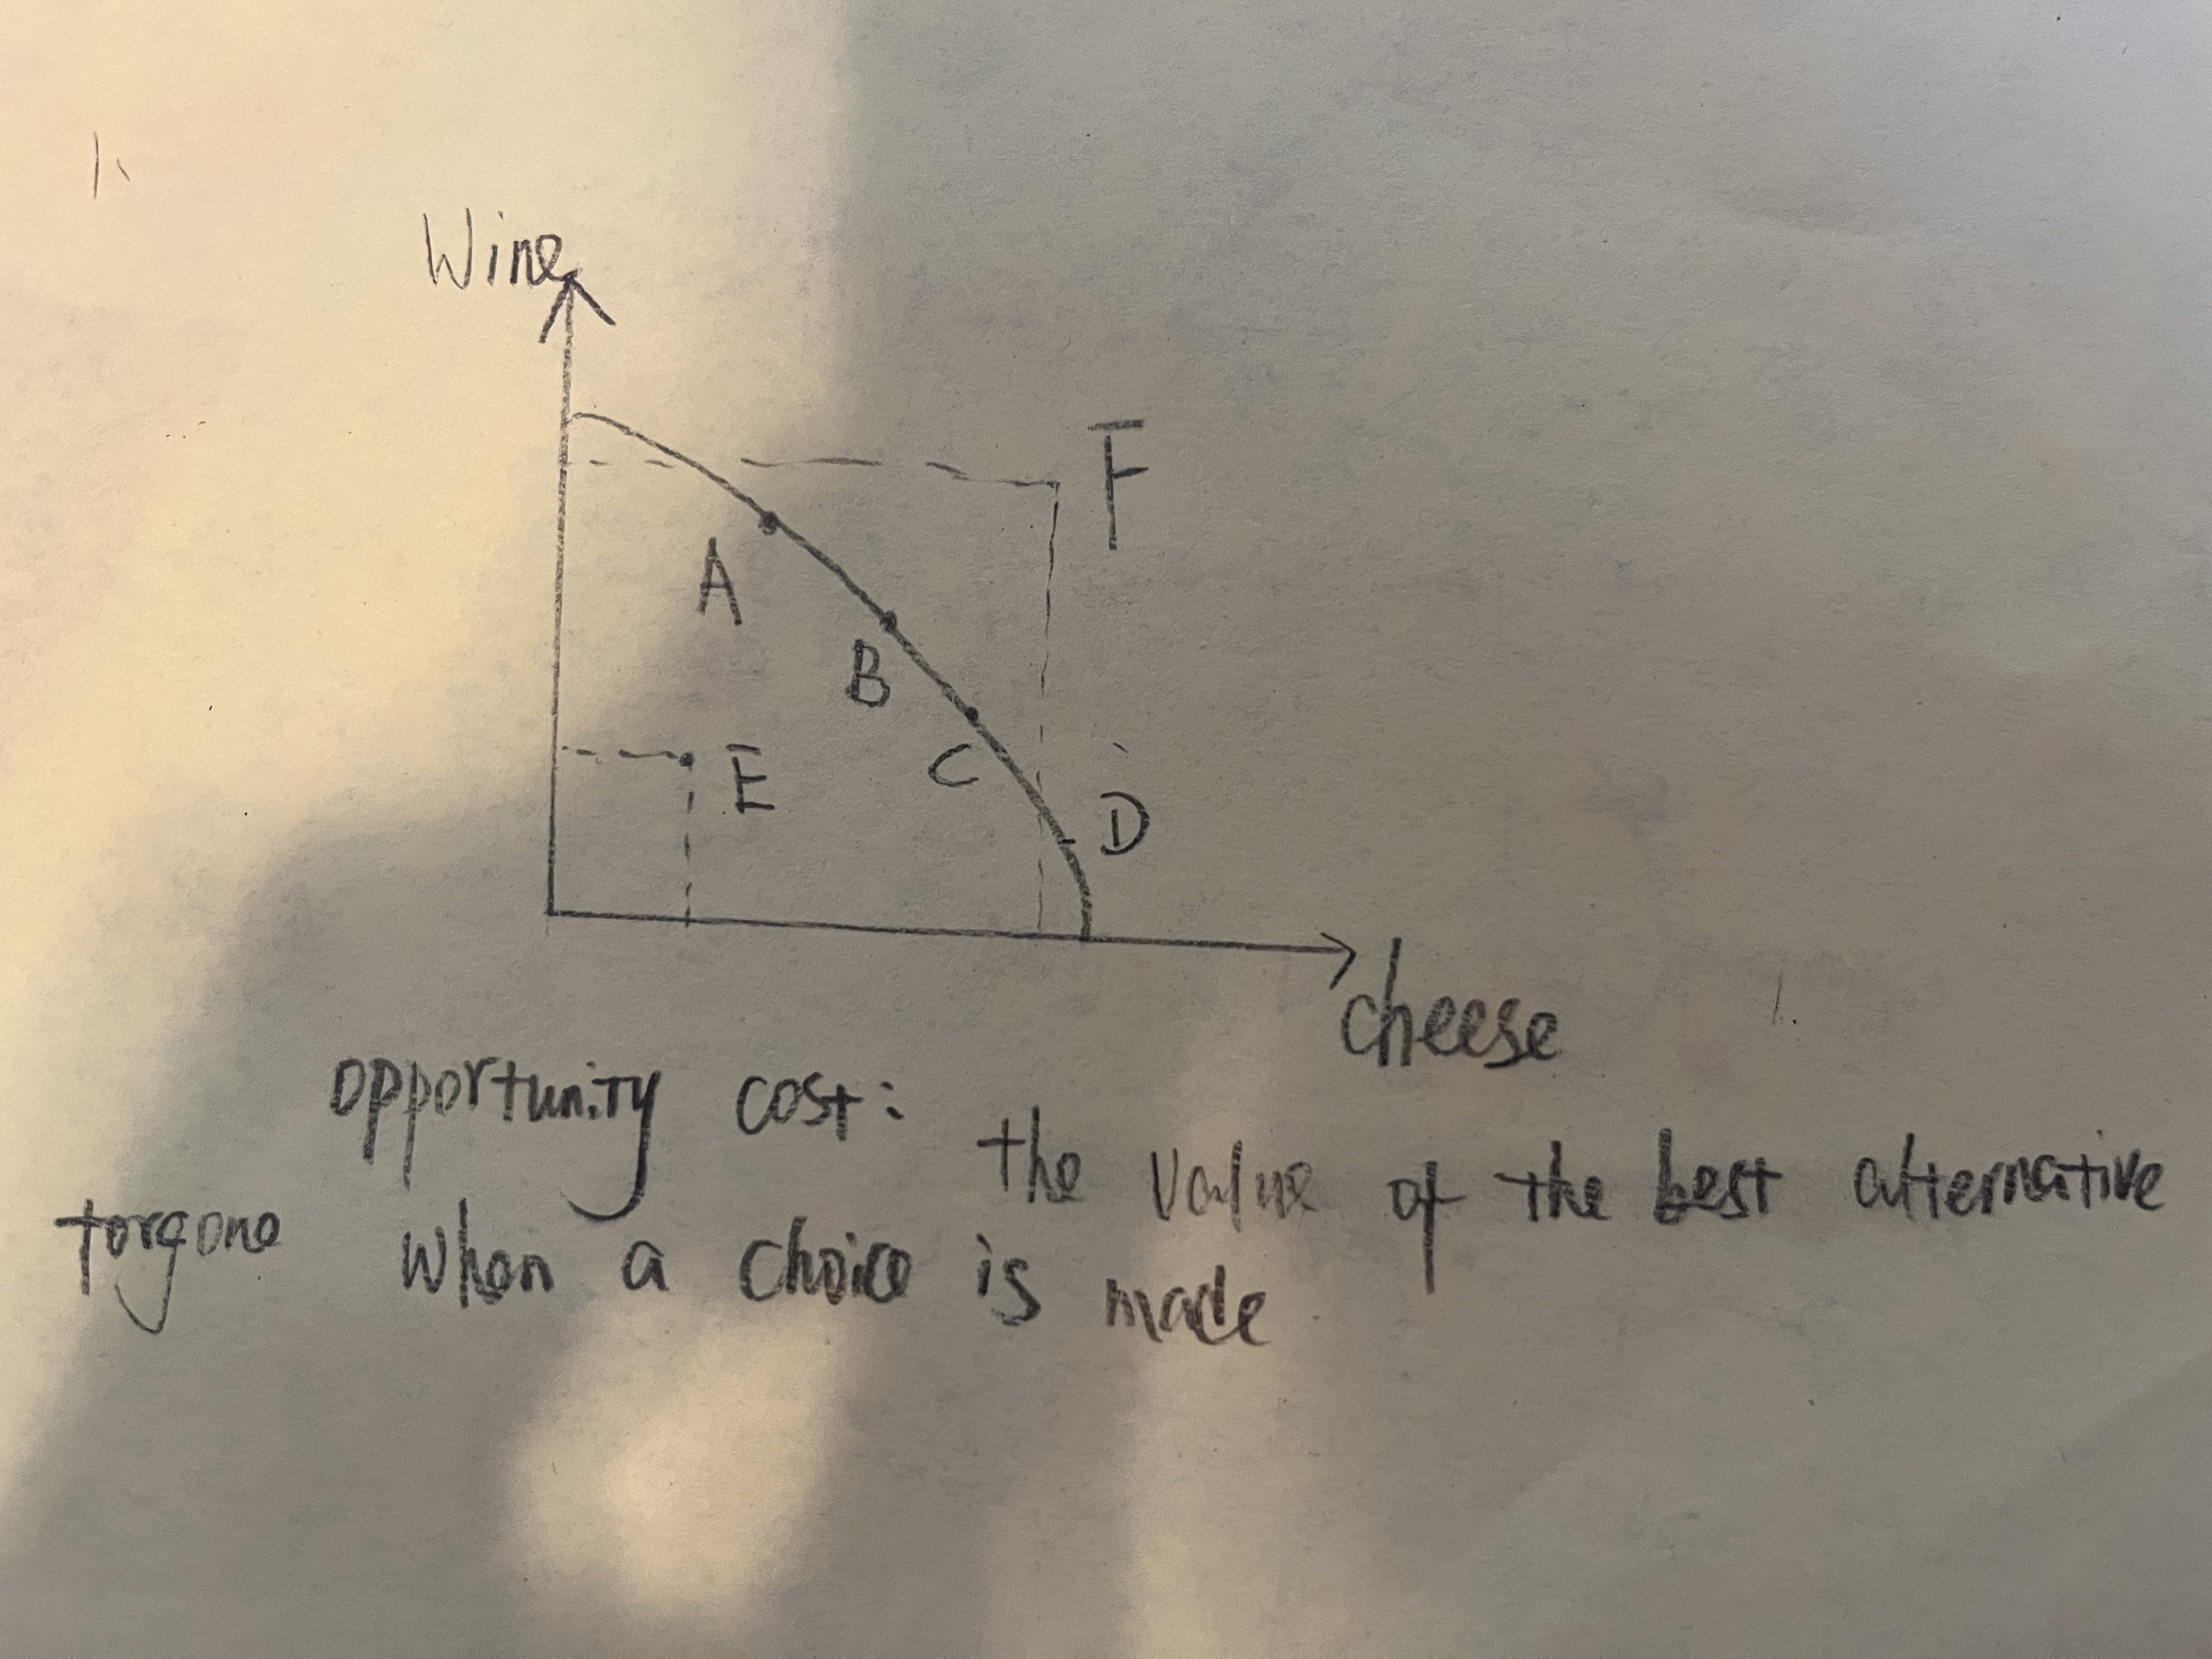 Wine
F
A
B
C
E
D
Cheese
opportunity cost: the value of the best alternative
forgone when a choice is made